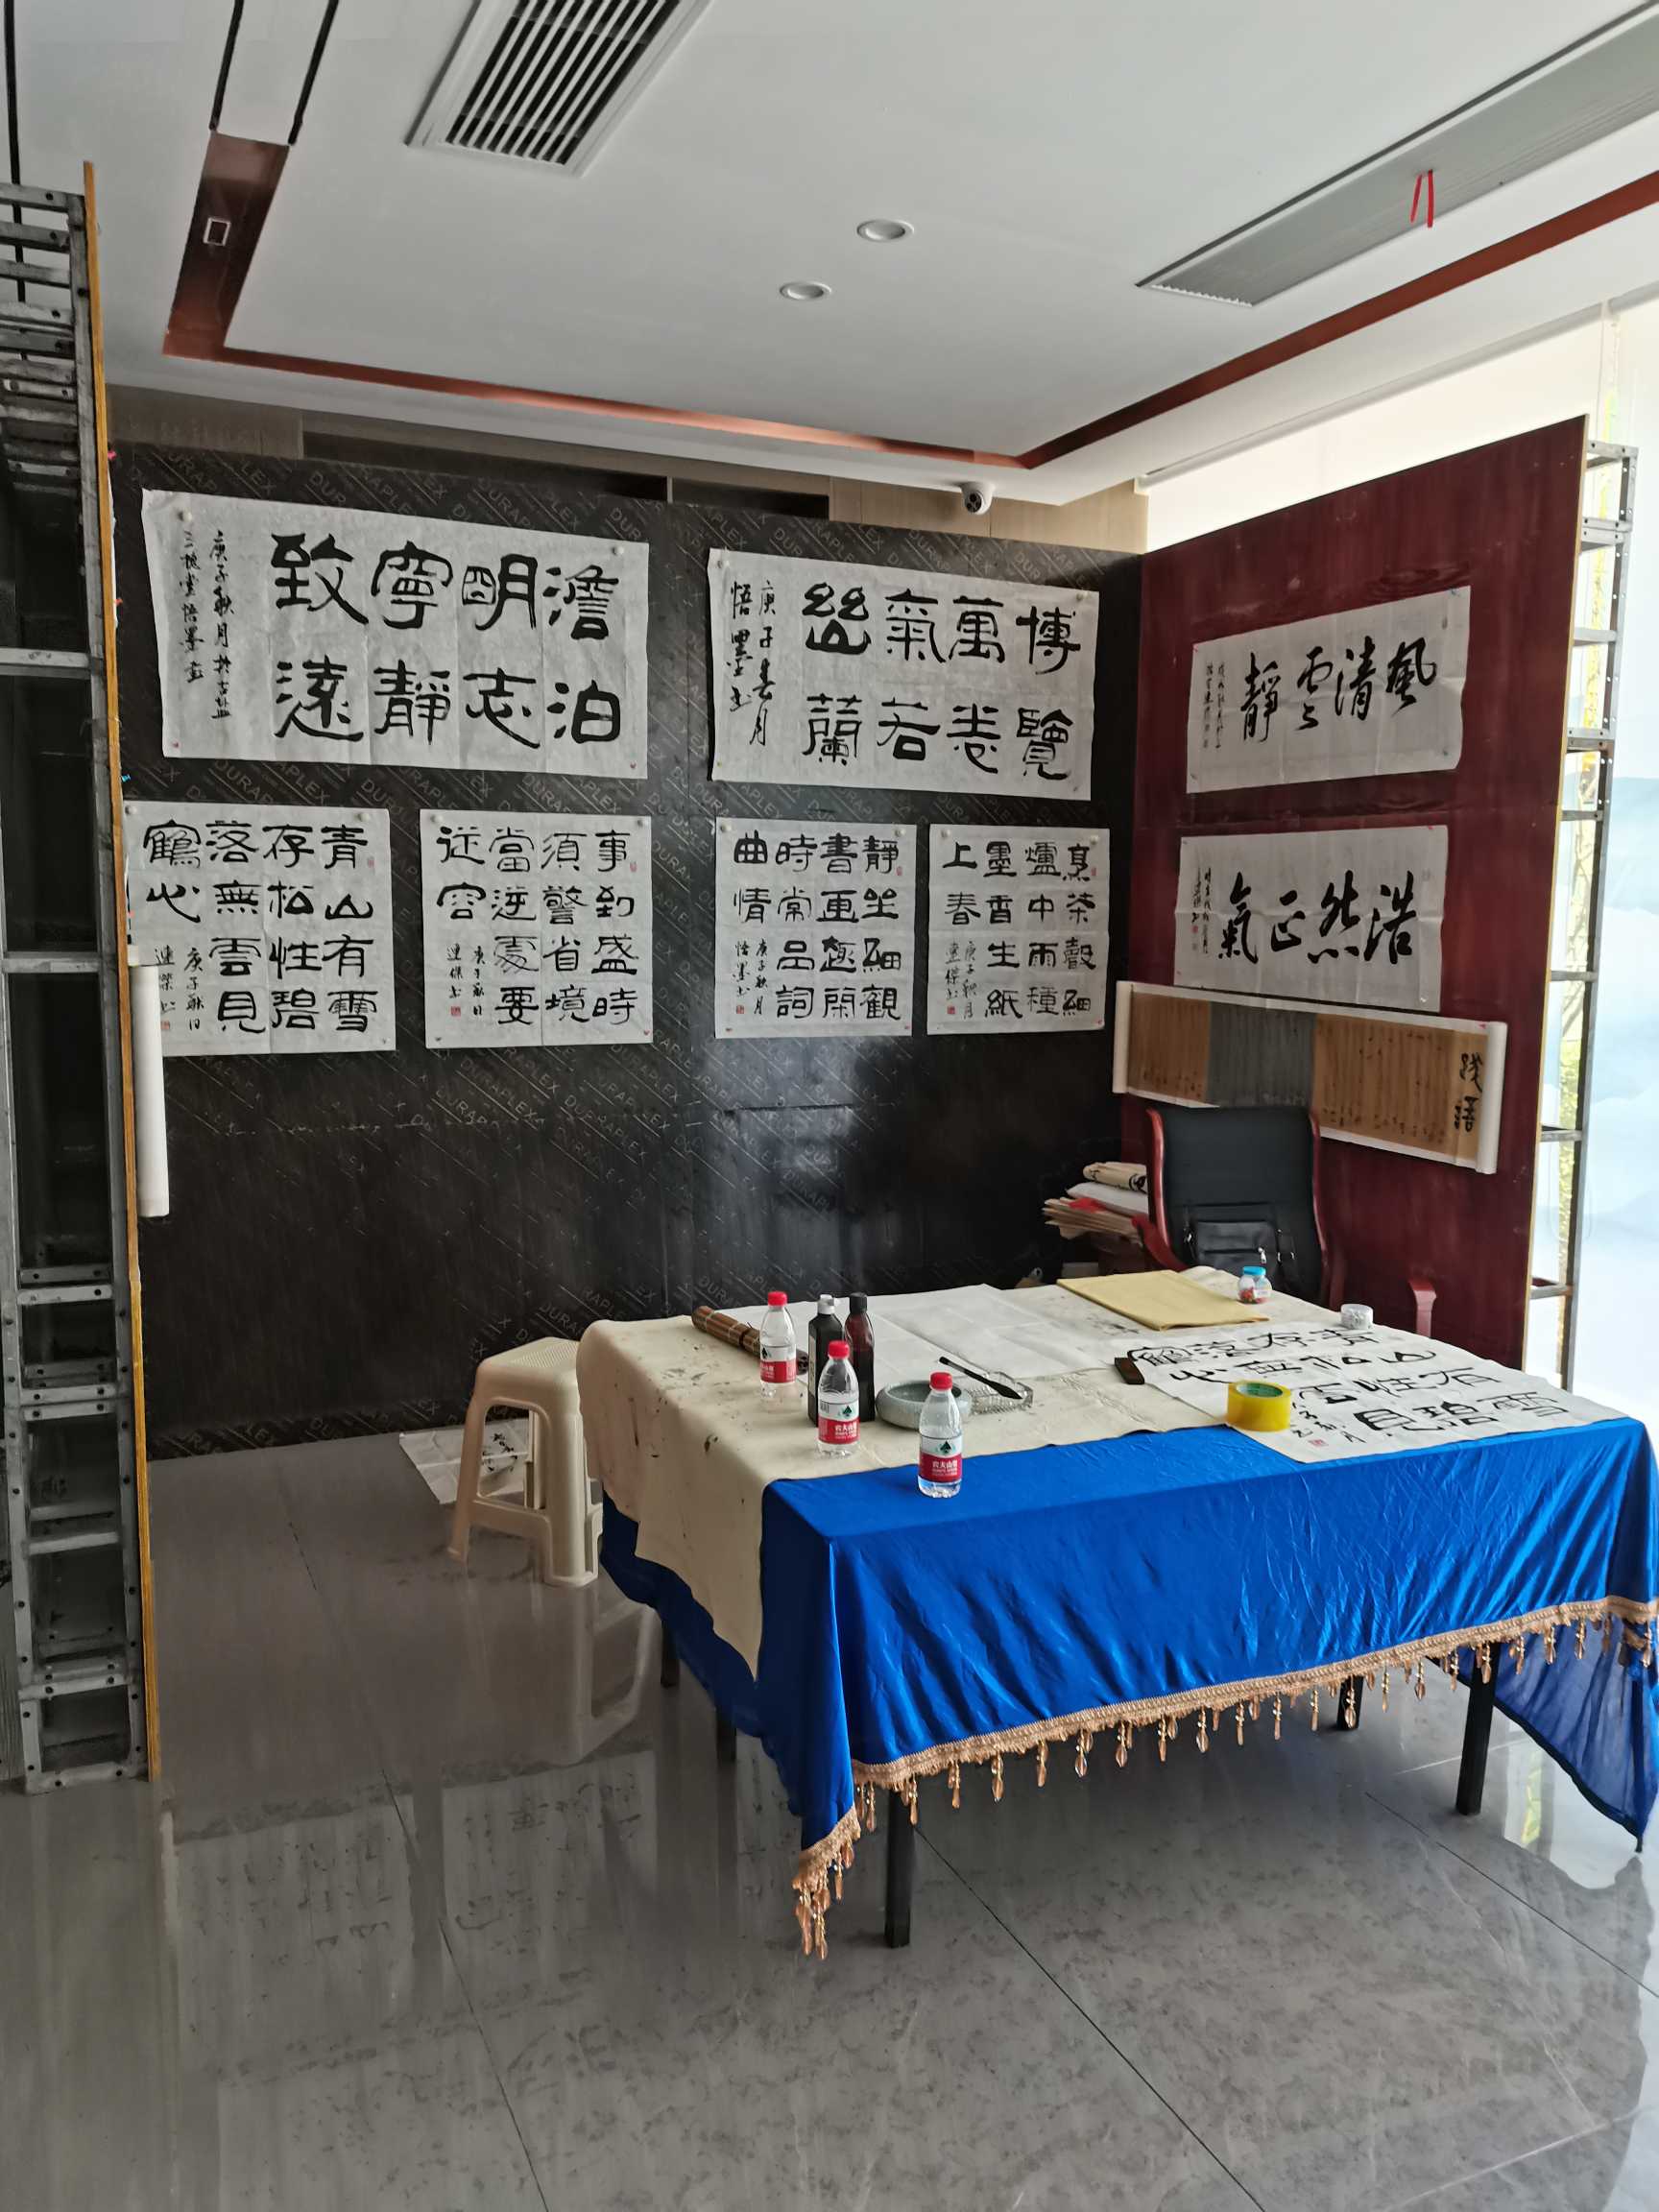 澹泊
明志
寧靜
致遠
庚子秋月於古
三槐堂悟墨書
博覽
萬卷
氣若
幽蘭
庚子春月
悟墨书
風清雲靜
青山有雪
存松性碧
落無雲見
鶴心
庚子秋日
連傑书
事到盛時
須警省境
當逆處要
從容
庚子秋日
連傑书
靜坐細觀
書画趣閑
時常品詞
曲情
庚子秋月
悟墨书
烹茶穀細
爐中雨種
墨香生紙
上春
庚子秋月
連傑书
浩然正氣
DURAPLEX
青山有雪
存松性碧
落無雲見
鶴心
农夫山泉
农夫山泉
农夫山泉